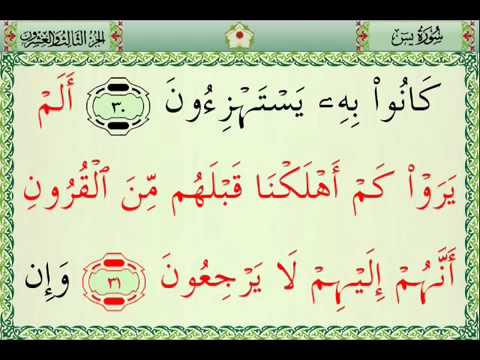 سُورَةُ يسٓ
الجزء الثالث والعشرون
كَانُوا۟ بِهِۦ يَسْتَهْزِءُونَ ٣٠ أَلَمْ
يَرَوْا۟ كَمْ أَهْلَكْنَا قَبْلَهُم مِّنَ ٱلْقُرُونِ
أَنَّهُمْ إِلَيْهِمْ لَا يَرْجِعُونَ ٣١ وَإِن